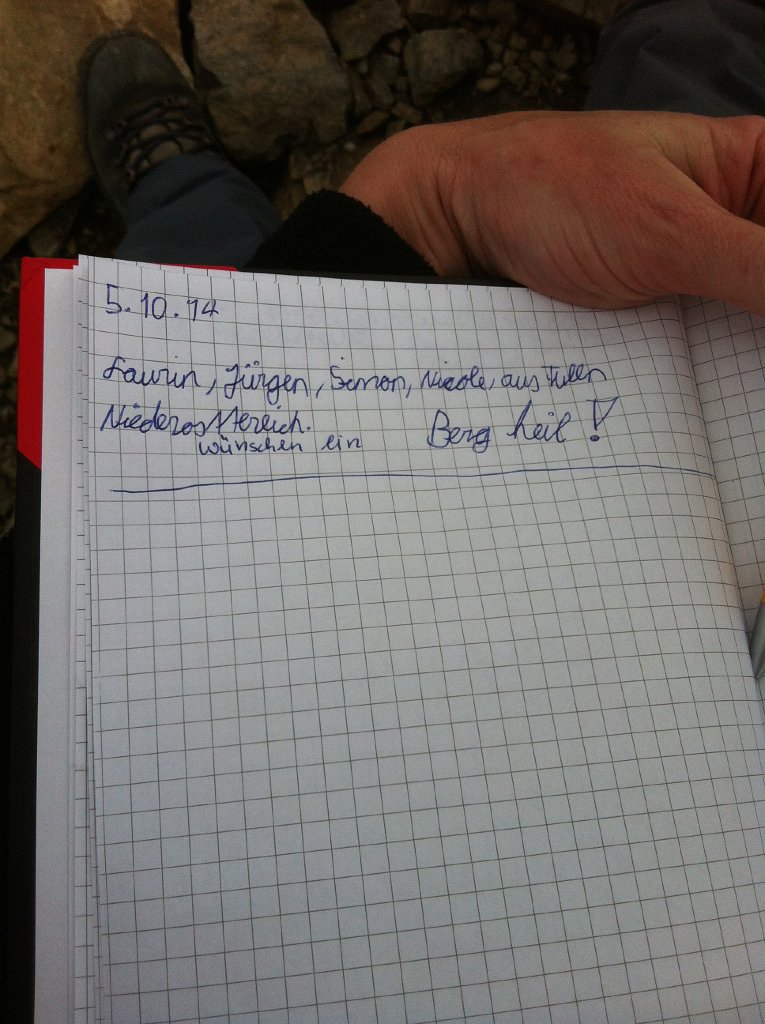 5.10.14
Laurin, Jürgen, Simon, Nicole, aus Tulln
Niederosttereich.
wünschen ein Berg heil!